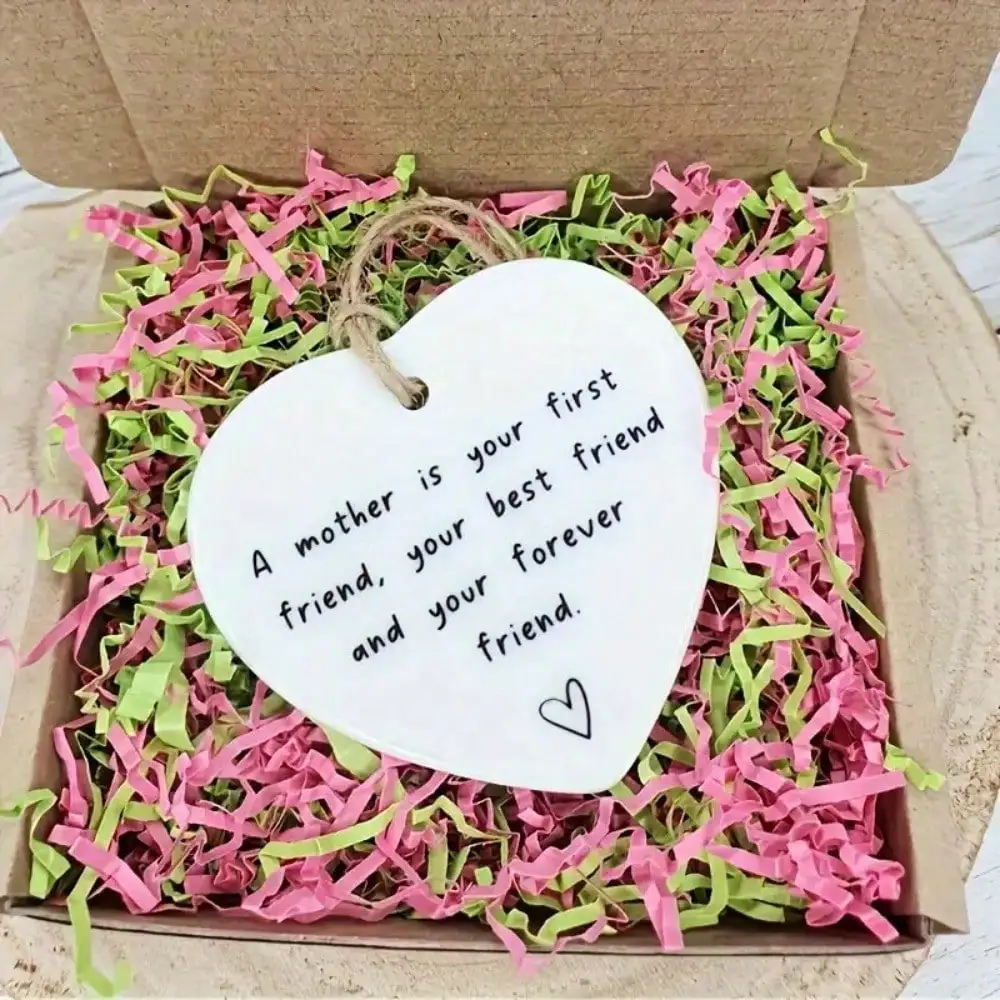 A mother is your first
friend, your best friend
and your forever
friend.